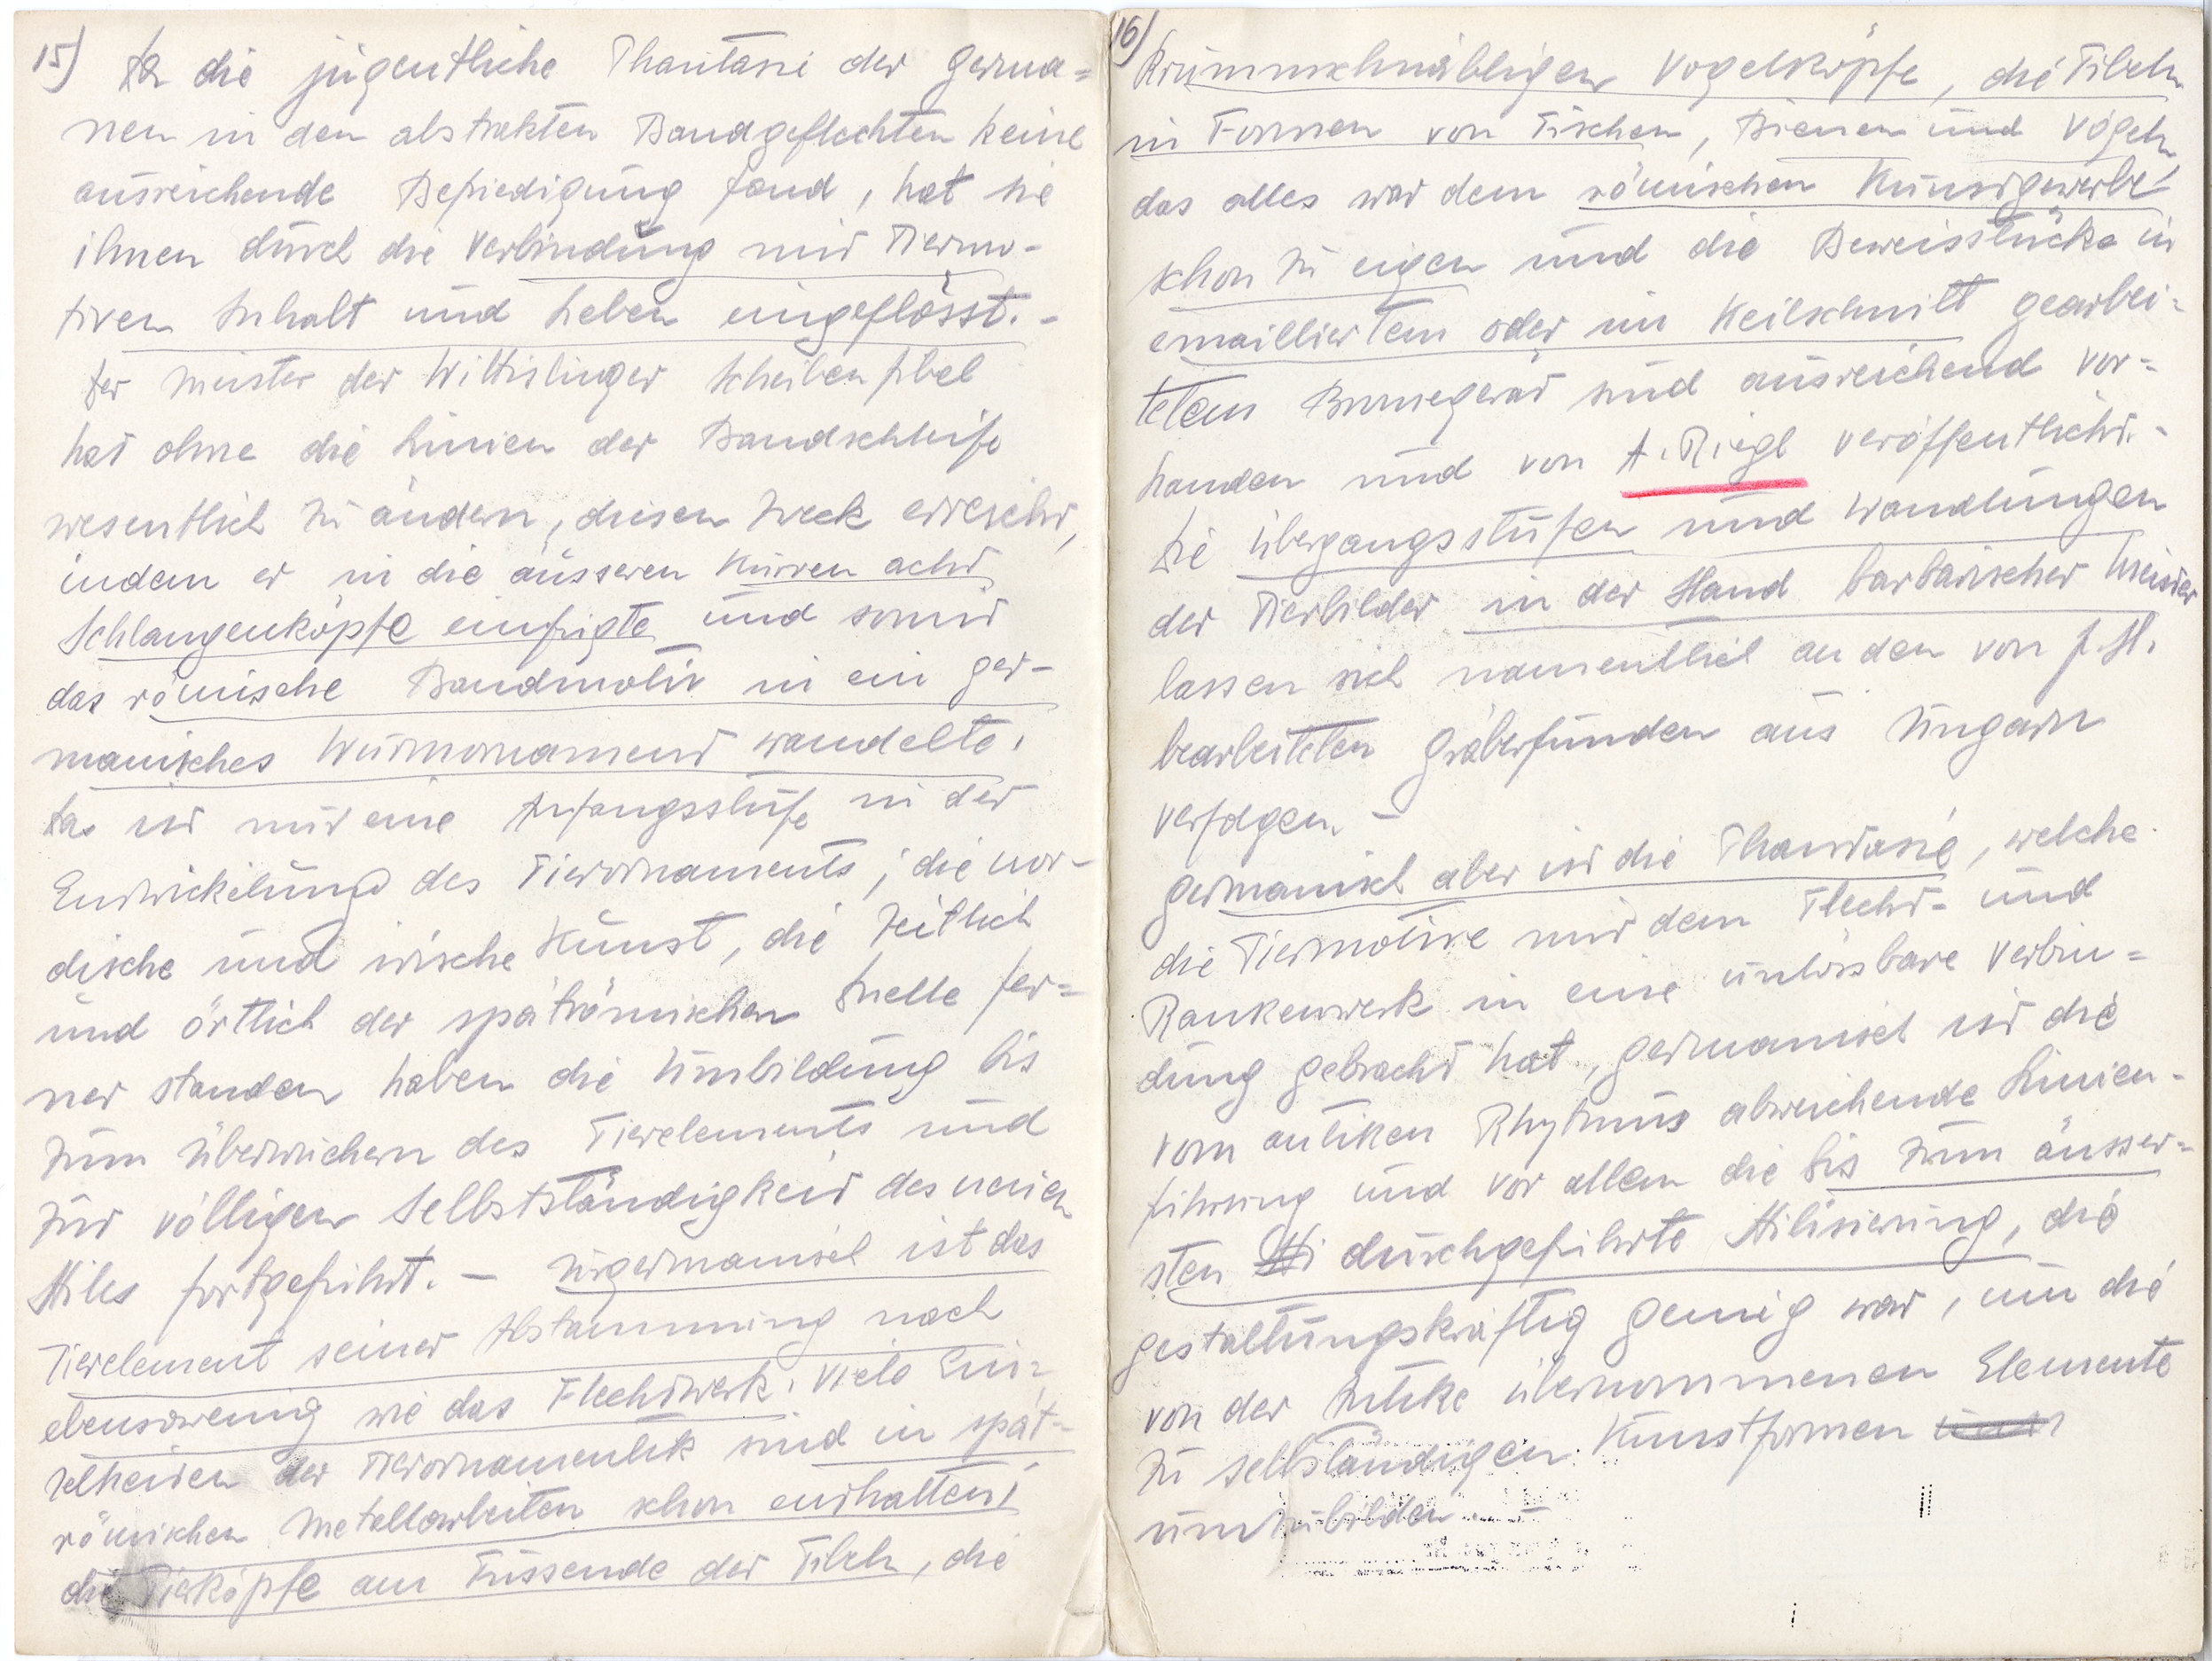 15) Da die jugentliche Phantasi der Germa=
nen in den abstrakten Bandgeflechten keine
ausreichende Befriedigung fand, hat sie
ihnen durch die Verbindung mit Tiermo-
tiven Inhalt und Leben eingeflösst. -
Der Meister der Wittislinger Scheibenfibel
hat ohne die Linien der Bandschleife
wesentlich zu ändern, diesen Zweck erreicht,
indem er in die äusseren Kurven acht
Schlangenköpfe einfügte und somit
das römische Bandmotiv in ein ger-
manisches Wurmornament wandelte.
Das ist nur eine Anfangsstufe in der
Entwickelung des Tierornaments; die nor-
dische und irische Kunst, die zeitlich
und örtlich der spätrömischen Quelle fer=
ner standen haben die Umbildung bis
zum Überwuchern des Tierelements und
zur völligen Selbstständigkeit des neuen
Stiles fortgeführt. - Urgermanisch ist das
Tierelement seiner Abstammung nach
ebensowenig wie das Flechtwerk. Viele Ein=
zelheiten der Tierornamentik sind in spät-
römischen Metallarbeiten schon enthalten;
die Tierköpfe am Fussende der Fibeln, die
16) Krummschnäbligen Vogelköpfe, die Fibeln
in Formen von Fischen, Bienen und Vögeln,
das alles war dem römischen Kunstgewerbe
schon zu eigen und die Beweisstücke in
emailliertem oder im Keilschnitt gearbei=
tetem Bronzegerät sind ausreichend vor=
handen und von A. Riegl veröffentlicht. -
Die Übergangsstufen und Wandlungen
der Tierbilder in der Hand barbarischer Meister
lassen sich namentlich an den von J. H.
bearbeiteten Gräberfunden aus Ungarn
verfolgen. -
Germanisch aber ist die Phantasie, welche
die Tiermotive mit dem Flecht- und
Rankenwerk in eine unlössbare Verbin=
dung gebracht hat, germanisch ist die
vom antiken Rhytmus abweichende Linien-
führung und vor allem die bis zum äusser=
sten durchgeführte Stilisierung, die
gestaltungskräftig genug war, um die
von der Antike übernommenen Elemente
zu selbständigen Kunstformen
umzubilden. -